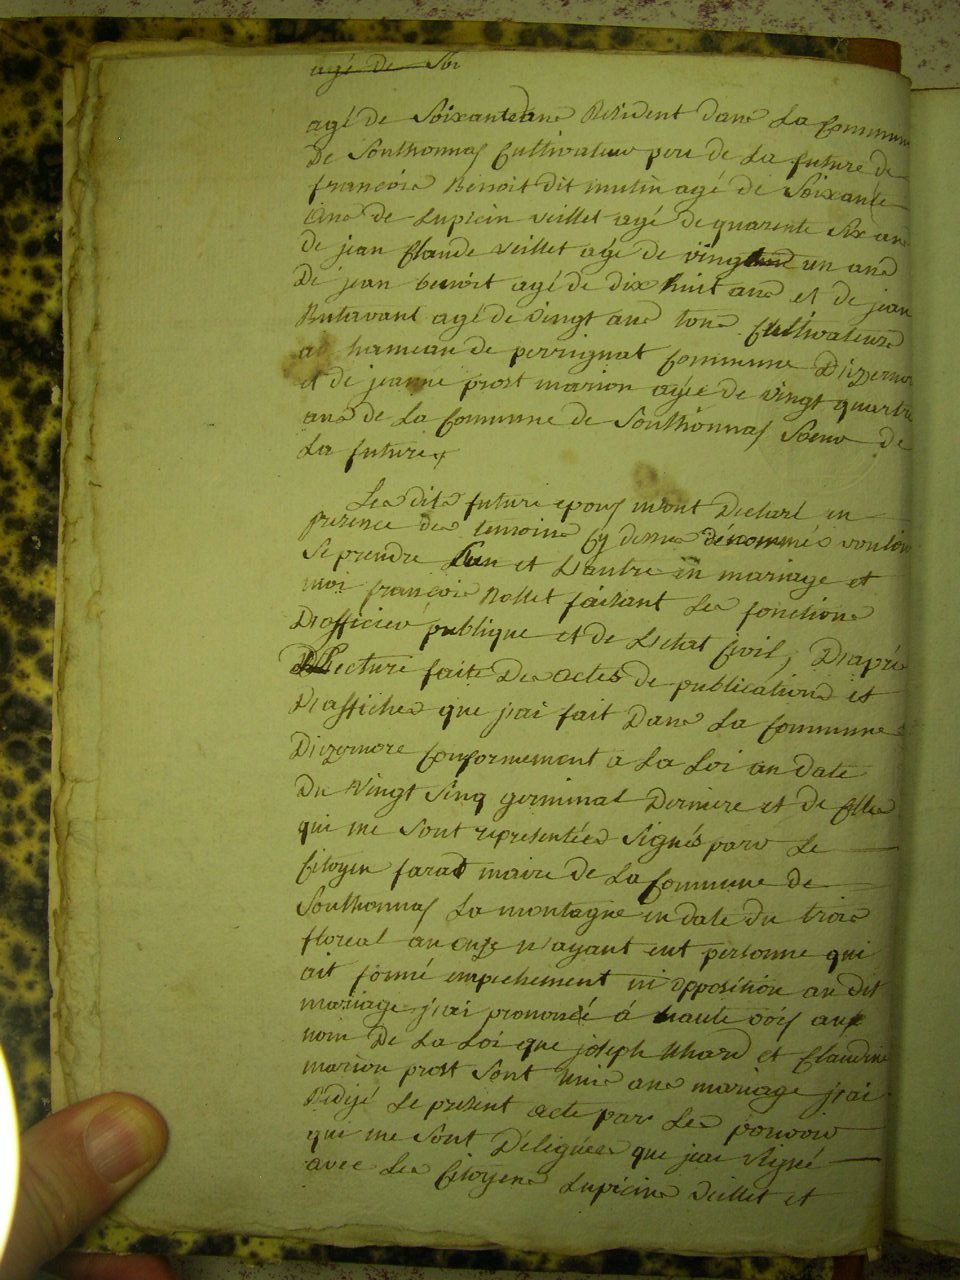 agé de Soi
agé de Soixante ans Résident dans La Commune
De Soulhonnas Cultivateur pere de La future de
francois Benoit dit mulin agé de Soixante
ans de Lupicin veillet agé de quarente Six ans
de jean Claude veillet agé de vingt un ans
De jean benoit agé de dix huit ans et de jean
Butavant agé de vingt ans tons Cultivateurs
au hameau de perrignat Commune D'izernore
et de jeanne prost marion agée de vingt quartre
ans de La Commune de Soulhonnas Soeur de
La future
Les dits futurs epous m'ont Declaré en
presence des temoins Cy desus dénommés vouloir
Se prendre L'un et L'autre en mariage et
moi francois Rollet faisant Les fonctions
D'officier publique et de L'etat Civil, D'après
Lecture faite Des actes de publications et
D'affiches que j'ai fait Dans La Commune
D'izernore Conformement a La Loi an date
Du Vingt Sinq germinal Derniere et de Elles
qui me Sont representées Signés par Le
Citoyen farat maire de La Commune de
Soulhonnas La montagne en date du trois
floreal an onze n'ayant eut personne qui
ait formé empechement ni opposition au dit
mariage j'ai prononsé á haute vois aux
nom De La Loi que joseph Uhard et Claudine
marion prost Sont Unis ans mariage j'ai
Redijé Le present acte par Les pouvoir
qui me Sont Déliguées que jai Signé
avec Les Citoyens Lupicins Veillet et